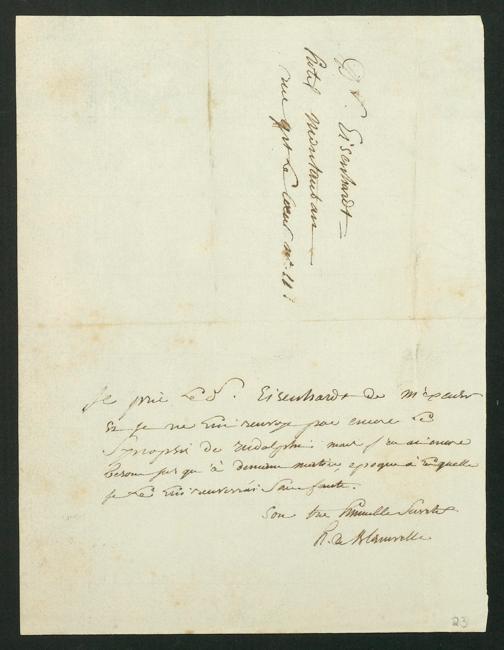 Dr. Eisenhardt
hotel Montauban
rue Git le Cœur n° 10.
Je prie le d. Eisenhardt de m'excuser
si je ne lui renvoye pas encore le
Synopsis de Rudolphi mais j'en ai encore
besoin jusqu'à demain matin époque à laquelle
je le lui renverrai sans faute.
Son très humble
H. de Blainville
23